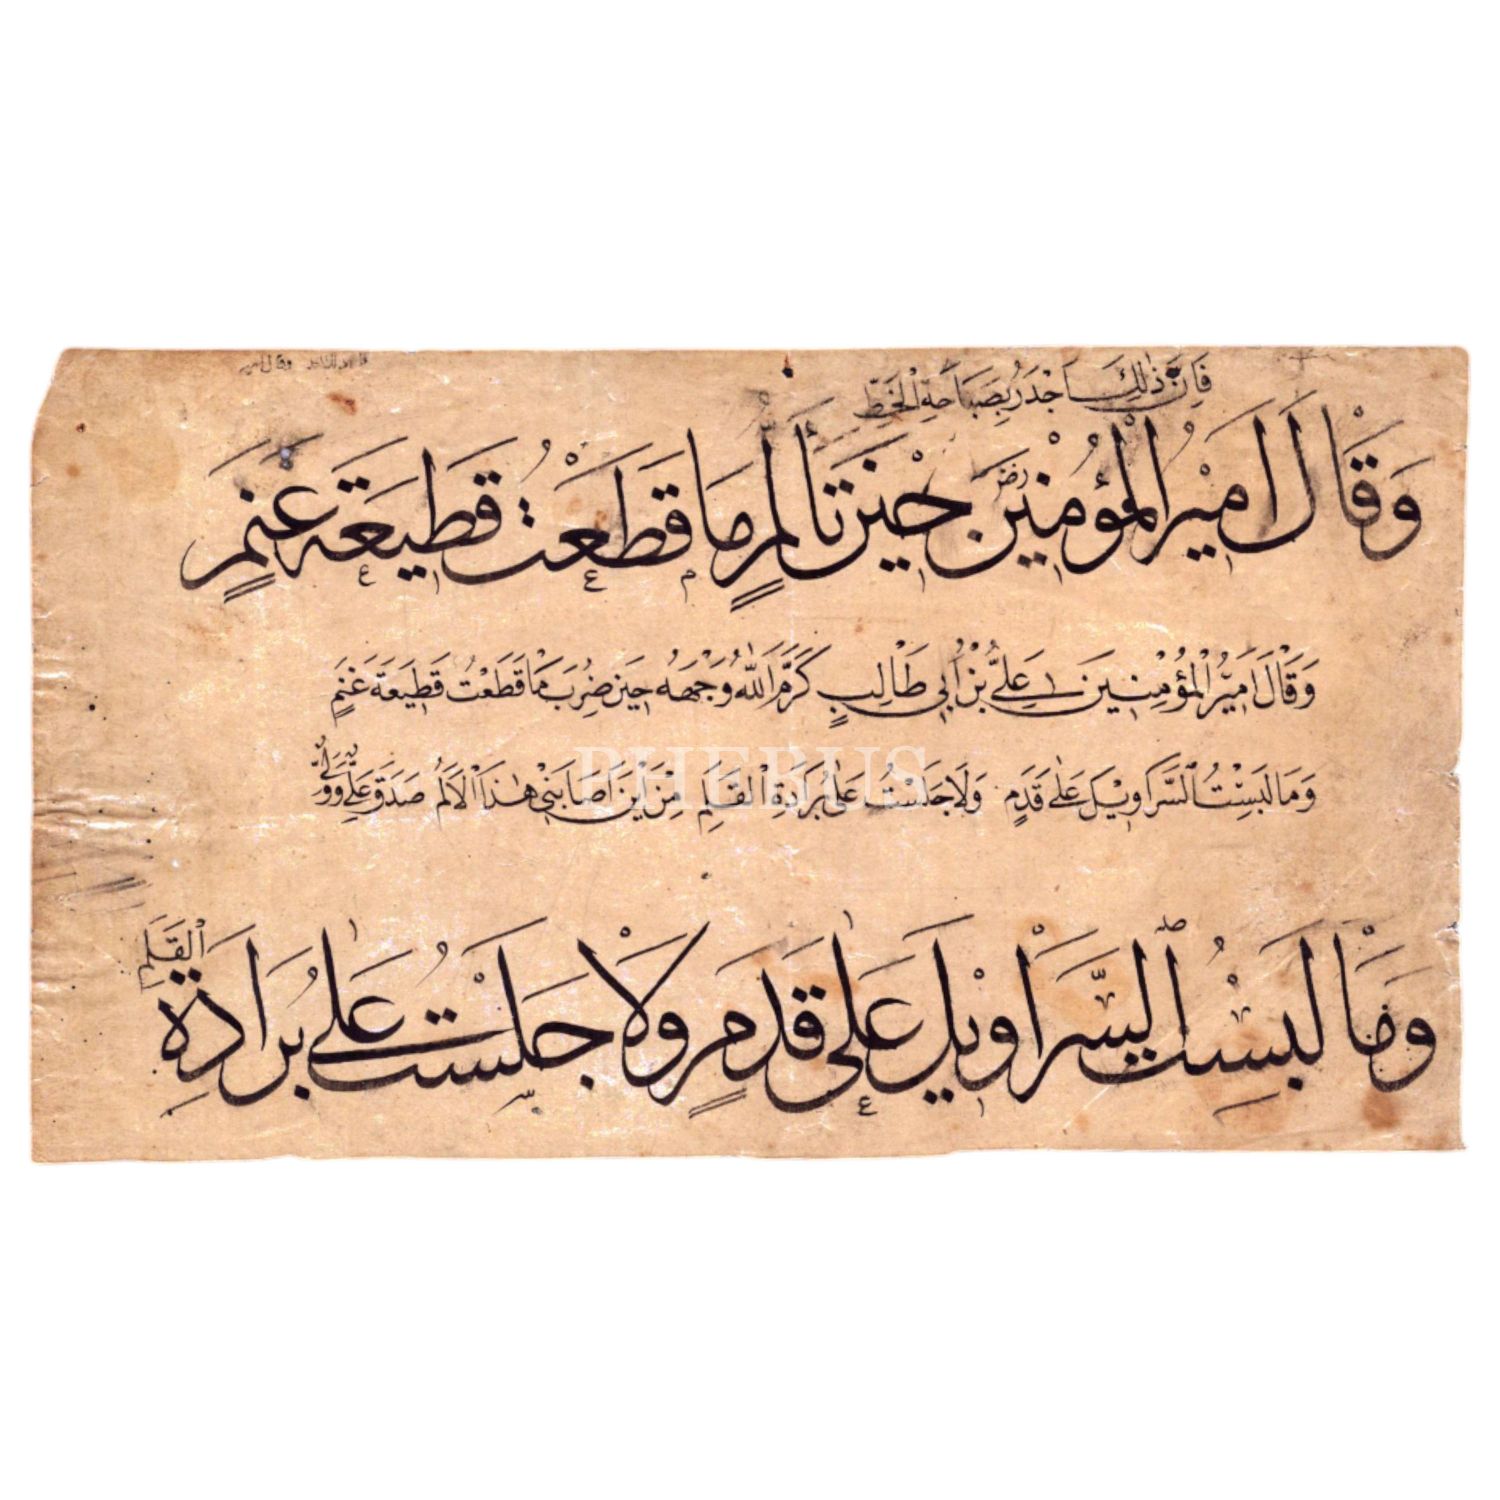 فَاِنَّ ذٰلِكَ اَجْدَرُ بِصَبَاحَةِ الْخَطِّ
وَقَالَ اَمِيْرُ الْمُؤْمِنِيْنَ رضى حِيْنَ تَأَلَّمٍ مَا قَطَعْتُ قَطِيعَةَ غَنَمٍ
وَقَالَ اَمِيرُ الْمُؤْمِنِينَ عَلِيُّ بْنُ اَبِي طَالِبٍ كَرَّمَ اللّٰهُ وَجْهَهُ حِينَ ضُرِبَ مَا قَطَعْتُ قَطِيعَةَ غَنَمٍ
وَمَا لَبِسْتُ السَّرَاوِيْلَ عَلٰى قَدَمٍ وَلَا جَلَسْتُ عَلٰى بُرَادَةِ الْقَلَمِ مِنْ اَيْنَ اَصَابَنِي هٰذَا الْاَلَمُ صَدَقَ عَلِيٌّ وَلِيُّ
وَمَا لَبِسْتُ السَّرَاوِيلَ عَلٰى قَدَمٍ وَلَا جَلَسْتُ عَلٰى بُرَادَةِ
الْقَلَمِ
PHEBUS